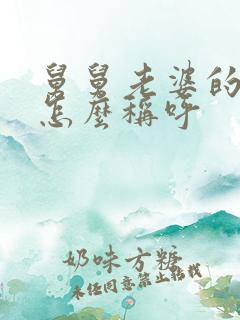 舅舅老婆的
怎麼稱呼
奶味方糖
未經同意禁止轉載